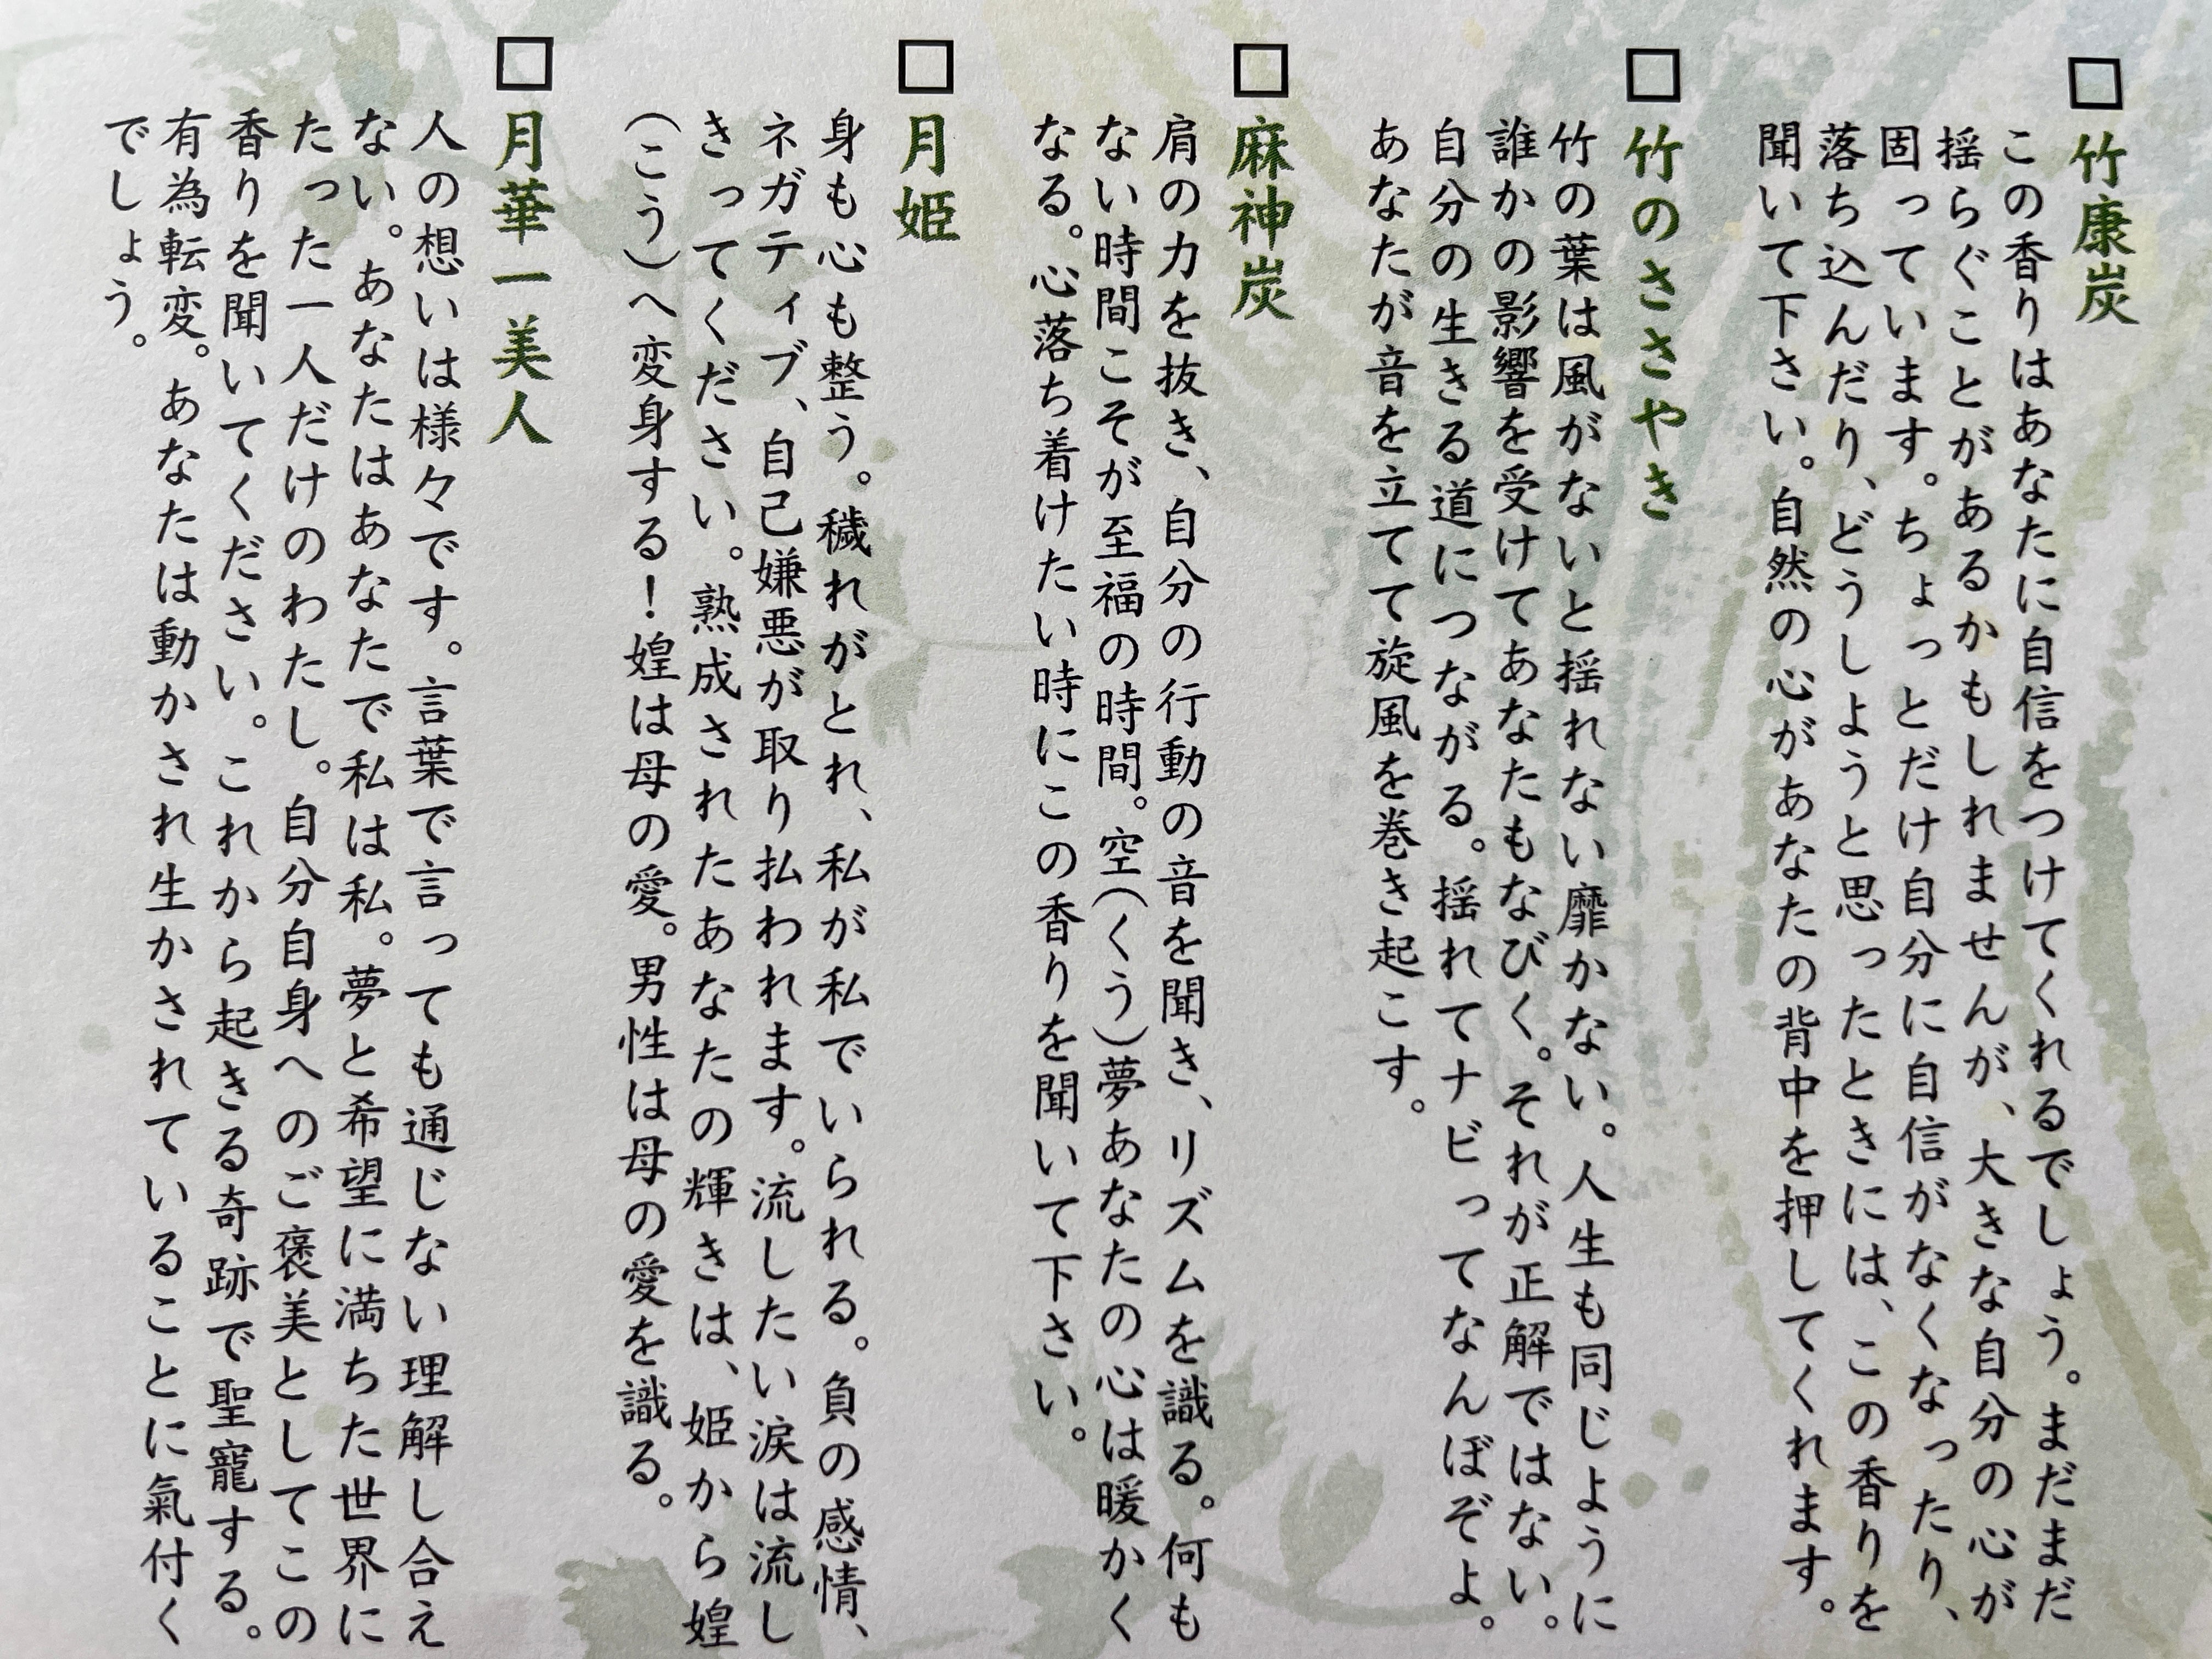 □竹康炭
この香りはあなたに自信をつけてくれるでしょう。まだまだ
揺らぐことがあるかもしれませんが、大きな自分の心が
固っています。ちょっとだけ自分に自信がなくなったり、
落ち込んだり、どうしようと思ったときには、この香りを
聞いて下さい。自然の心があなたの背中を押してくれます。
□竹のささやき
竹の葉は風がないと揺れない靡かない。人生も同じように
誰かの影響を受けてあなたもなびく。それが正解ではない。
自分の生きる道につながる。揺れてナビってなんぼぞよ。
あなたが音を立てて旋風を巻き起こす。
□麻神炭
肩の力を抜き、自分の行動の音を聞き、リズムを識る。何も
ない時間こそが至福の時間。空(くう)夢あなたの心は暖かく
なる。心落ち着けたい時にこの香りを聞いて下さい。
□月姫
身も心も整う。穢れがとれ、私が私でいられる。負の感情、
ネガティブ、自己嫌悪が取り払われます。流したい涙は流し
きってください。熟成されたあなたの輝きは、姫から媓
(こう)へ変身する！媓は母の愛。男性は母の愛を識る。
□月華一美人
人の想いは様々です。言葉で言っても通じない理解し合え
ない。あなたはあなたで私は私。夢と希望に満ちた世界に
たった一人だけのわたし。自分自身へのご褒美としてこの
香りを聞いてください。これから起きる奇跡で聖寵する。
有為転変。あなたは動かされ生かされていることに氣付く
でしょう。